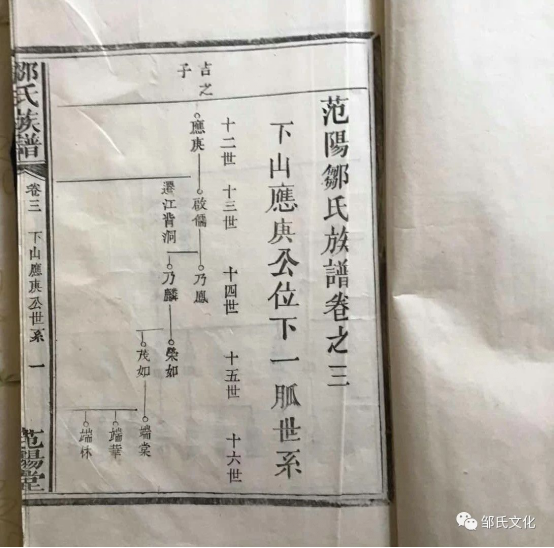 范陽鄒氏族譜卷之三
下山應庚公位下一脈世系
十二世 十三世 十四世 十五世 十六世
吉之
子
應庚 啟儒 乃鳳
遷江背洞
乃麟 榮如
茂如 端棠
端華
端林
鄒氏族譜
卷三 下山應庚公世系 一
范陽堂
邹氏文化